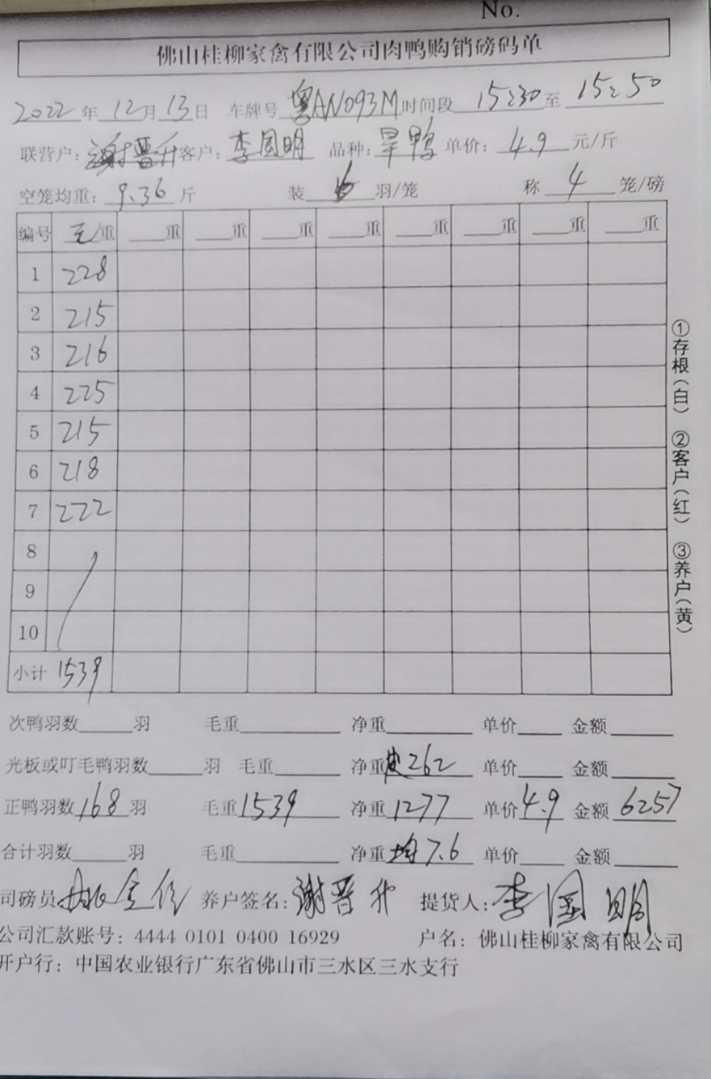 No.
佛山桂柳家禽有限公司肉鸭购销磅码单
2022年12月13日 车牌号 粤AN093M 时间段 15:30至 15:50
联营户: 谢晋升 客户: 李国明 品种: 旱鸭 单价: 4.9 元/斤
空笼均重: 9.36 斤 装 6 羽/笼 称 4 笼/磅
编号 毛重 重 重 重 重 重 重 重 重
1 228
2 215
3 216
4 225
5 215
6 218
7 222
8
9
10
小计 1539
次鸭羽数 羽 毛重 净重 单价 金额
光板或叮毛鸭羽数 羽 毛重 净重 皮262 单价 金额
正鸭羽数 168 羽 毛重 1539 净重 1277 单价 4.9 金额 6257
合计羽数 羽 毛重 净重 均7.6 单价 金额
司磅员 养户签名: 谢晋升 提货人: 李国明
公司汇款账号: 4444 0101 0400 16929 户名: 佛山桂柳家禽有限公司
开户行: 中国农业银行广东省佛山市三水区三水支行
①存根(白) ②客户(红) ③养户(黄)